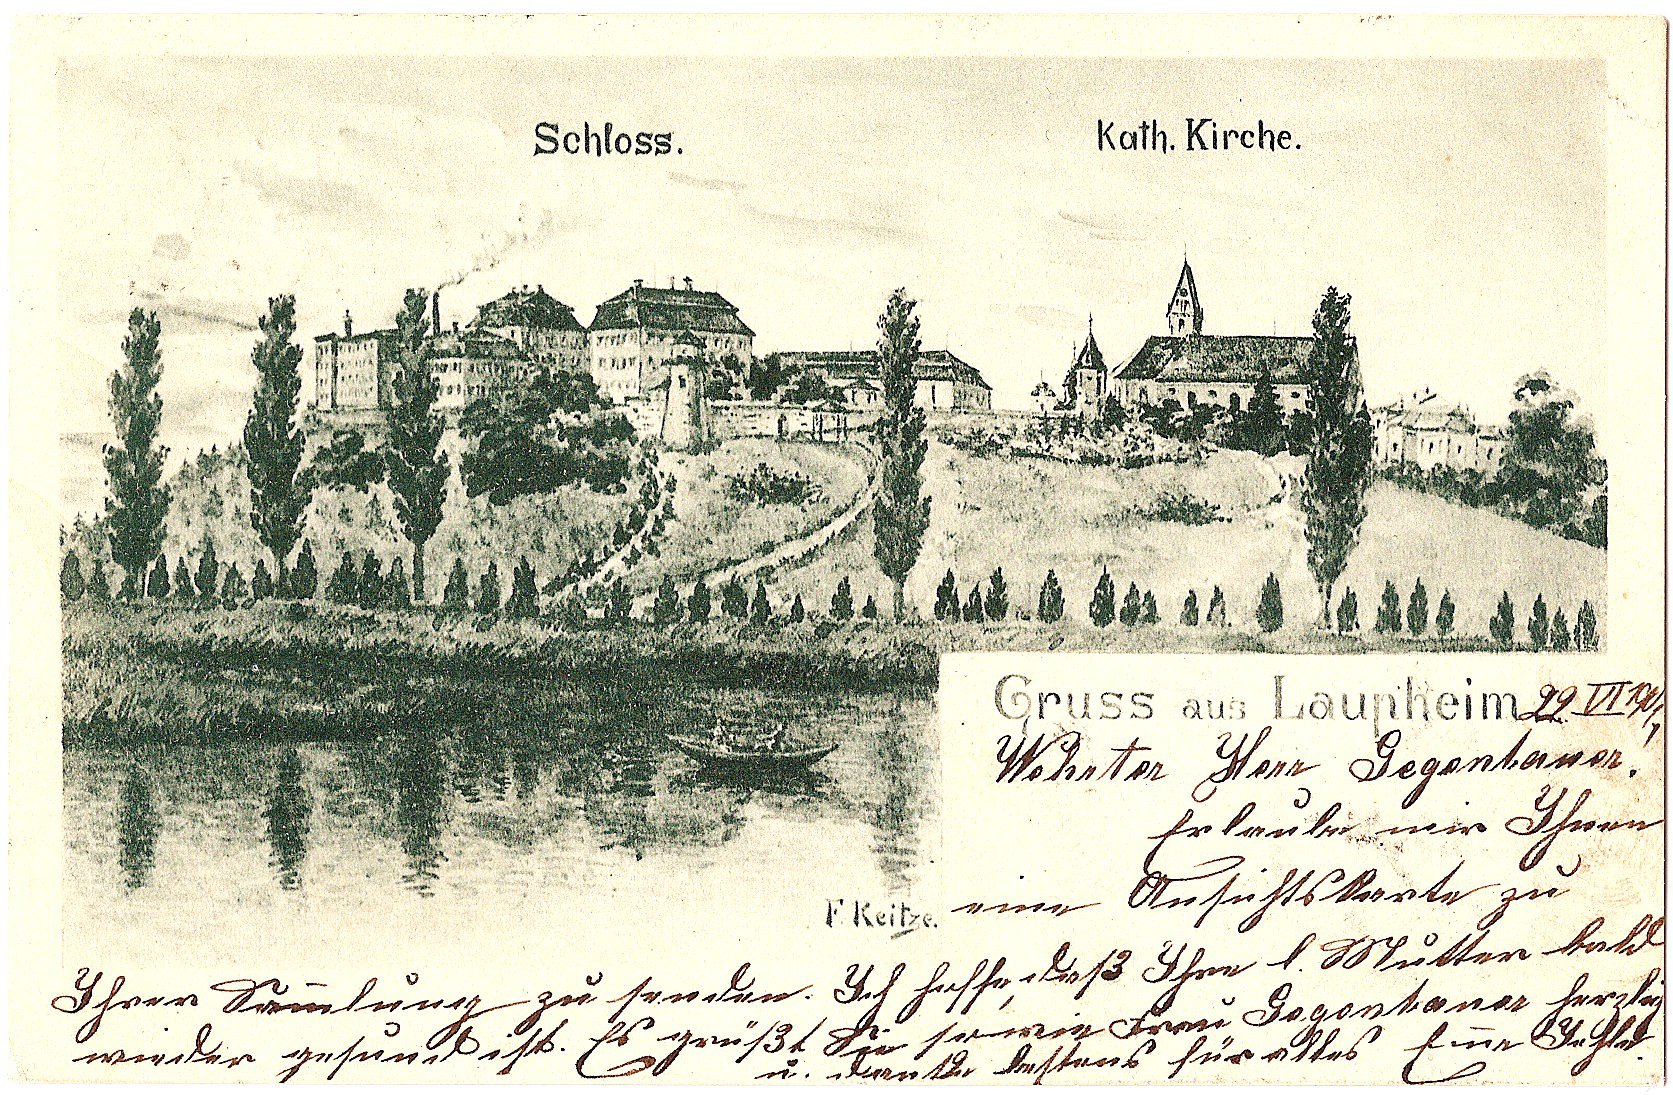 Schloss.
Kath. Kirche.
Gruss aus Laupheim 22. VI 190
Wehrter Herr Gegenbauer!
Erlaube mir Ihnen
eine Ansichtskarte zu
Ihrer Sam̅lung zu senden. Ich hoffe, daß Ihre l. Mutter bald
wieder gesund ist. Es grüßt Sie sowie Frau Gegenbauer herzlich
u. danke bestens für alles Em̅e
F. Keitze.